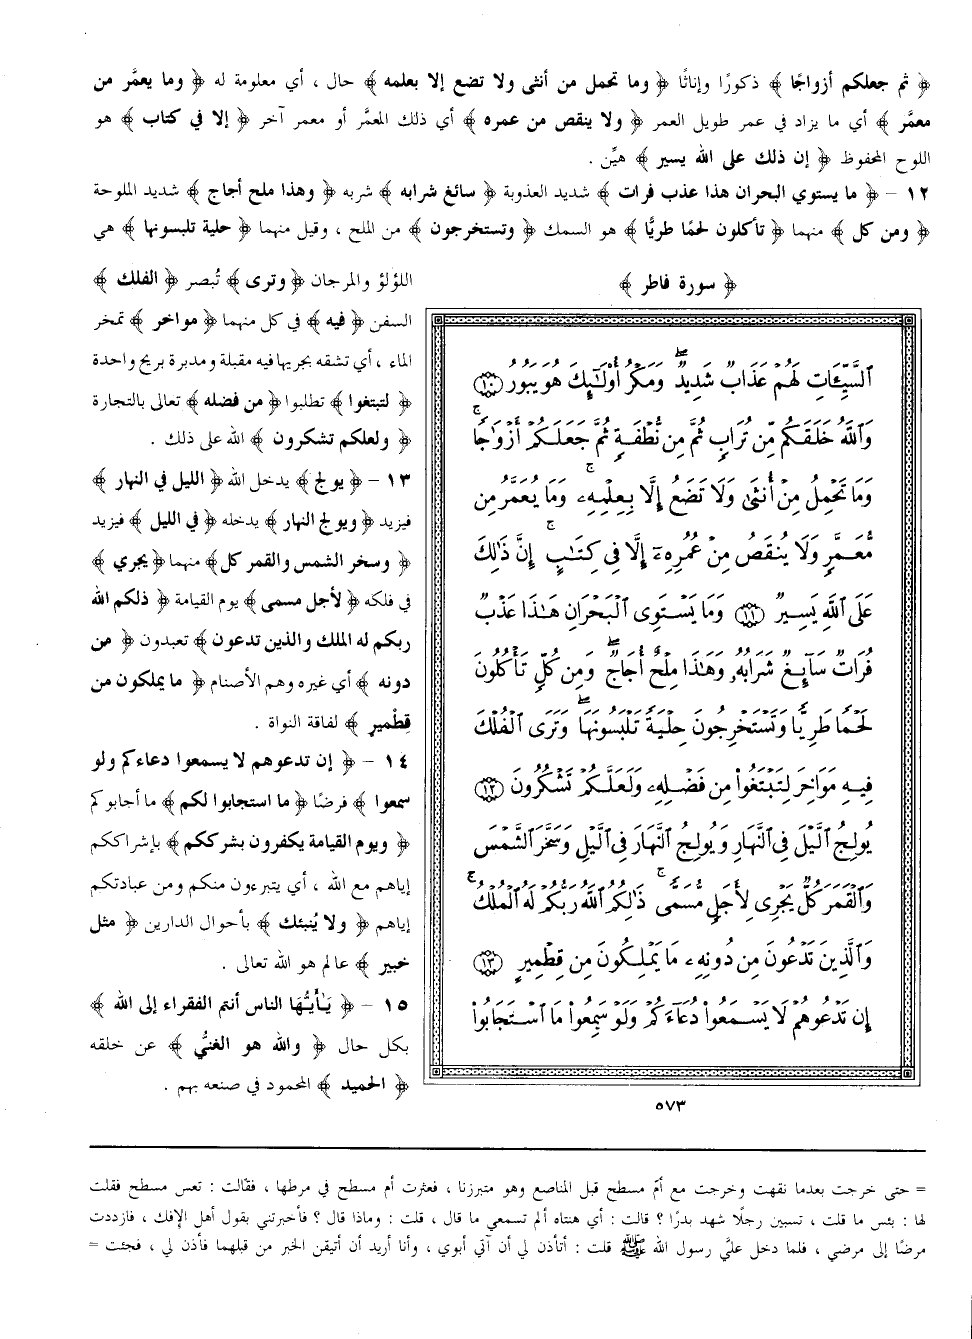 ﴿ ثم جعلكم أزواجًا ﴾ ذكورًا وإناثًا ﴿ وما تحمل من أنثى ولا تضع إلا بعلمه ﴾ حال ، أي معلومة له ﴿ وما يعمَّر من
معمَّر ﴾ أي ما يزاد في عمر طويل العمر ﴿ ولا ينقص من عمره ﴾ أي ذلك المعمَّر أو معمر آخر ﴿ إلا في كتاب ﴾ هو
اللوح المحفوظ ﴿ إن ذلك على الله يسير ﴾ هيِّن .
١٢ – ﴿ ما يستوي البحران هذا عذب فرات ﴾ شديد العذوبة ﴿ سائغ شرابه ﴾ شربه ﴿ وهذا ملح أجاج ﴾ شديد الملوحة
﴿ ومن كل ﴾ منهما ﴿ تأكلون لحمًا طريًّا ﴾ هو السمك ﴿ وتستخرجون ﴾ من الملح ، وقيل منهما ﴿ حلية تلبسونها ﴾ هي
﴿ سورة فاطر ﴾
ٱلسَّيِّـَٔاتِ لَهُمْ عَذَابٌ شَدِيدٌ ۖ وَمَكْرُ أُو۟لَـٰٓئِكَ هُوَ يَبُورُ ⁝١٠⁝
وَٱللَّهُ خَلَقَكُم مِّن تُرَابٍ ثُمَّ مِن نُّطْفَةٍ ثُمَّ جَعَلَكُمْ أَزْوَٰجًا ۚ
وَمَا تَحْمِلُ مِنْ أُنثَىٰ وَلَا تَضَعُ إِلَّا بِعِلْمِهِۦ ۚ وَمَا يُعَمَّرُ مِن
مُّعَمَّرٍ وَلَا يُنقَصُ مِنْ عُمُرِهِۦٓ إِلَّا فِى كِتَـٰبٍ ۚ إِنَّ ذَٰلِكَ
عَلَى ٱللَّهِ يَسِيرٌ ⁝١١⁝ وَمَا يَسْتَوِى ٱلْبَحْرَانِ هَـٰذَا عَذْبٌ
فُرَاتٌ سَآئِغٌ شَرَابُهُۥ وَهَـٰذَا مِلْحٌ أُجَاجٌ ۖ وَمِن كُلٍّ تَأْكُلُونَ
لَحْمًا طَرِيًّا وَتَسْتَخْرِجُونَ حِلْيَةً تَلْبَسُونَهَا ۖ وَتَرَى ٱلْفُلْكَ
فِيهِ مَوَاخِرَ لِتَبْتَغُوا۟ مِن فَضْلِهِۦ وَلَعَلَّكُمْ تَشْكُرُونَ ⁝١٢⁝
يُولِجُ ٱلَّيْلَ فِى ٱلنَّهَارِ وَيُولِجُ ٱلنَّهَارَ فِى ٱلَّيْلِ وَسَخَّرَ ٱلشَّمْسَ
وَٱلْقَمَرَ كُلٌّ يَجْرِى لِأَجَلٍ مُّسَمًّى ۚ ذَٰلِكُمُ ٱللَّهُ رَبُّكُمْ لَهُ ٱلْمُلْكُ ۚ
وَٱلَّذِينَ تَدْعُونَ مِن دُونِهِۦ مَا يَمْلِكُونَ مِن قِطْمِيرٍ ⁝١٣⁝
إِن تَدْعُوهُمْ لَا يَسْمَعُوا۟ دُعَآءَكُمْ وَلَوْ سَمِعُوا۟ مَا ٱسْتَجَابُوا۟
٥٧٣
اللؤلؤ والمرجان ﴿ وترى ﴾ تُبصر ﴿ الفلك ﴾
السفن ﴿ فيه ﴾ في كل منهما ﴿ مواخر ﴾ تمخر
الماء ، أي تشقه بجريها فيه مقبلة ومدبرة بريح واحدة
﴿ لتبتغوا ﴾ تطلبوا ﴿ من فضله ﴾ تعالى بالتجارة
﴿ ولعلكم تشكرون ﴾ الله على ذلك .
١٣ – ﴿ يولج ﴾ يدخل الله ﴿ الليل في النهار ﴾
فيزيد ﴿ ويولج النهار ﴾ يدخله ﴿ في الليل ﴾ فيزيد
﴿ وسخر الشمس والقمر كل ﴾ منهما ﴿ يجري ﴾
في فلكه ﴿ لأجل مسمى ﴾ يوم القيامة ﴿ ذلكم الله
ربكم له الملك والذين تدعون ﴾ تعبدون ﴿ من
دونه ﴾ أي غيره وهم الأصنام ﴿ ما يملكون من
قِطْمير ﴾ لفافة النواة .
١٤ – ﴿ إن تدعوهم لا يسمعوا دعاءكم ولو
سمعوا ﴾ فرضًا ﴿ ما استجابوا لكم ﴾ ما أجابوكم
﴿ ويوم القيامة يكفرون بشرككم ﴾ بإشراككم
إياهم مع الله ، أي يتبرءون منكم ومن عبادتكم
إياهم ﴿ ولا يُنبئك ﴾ بأحوال الدارين ﴿ مثل
خبير ﴾ عالم هو الله تعالى .
١٥ – ﴿ يَـٰأَيُّهَا الناس أنتم الفقراء إلى الله ﴾
بكل حال ﴿ والله هو الغنيُّ ﴾ عن خلقه
﴿ الحميد ﴾ المحمود في صنعه بهم .
= حتى خرجت بعدما نقهت وخرجت مع أمّ مسطح قبل المناصع وهو متبرزنا ، فعثرت أم مسطح في مرطها ، فقالت : تعس مسطح فقلت
لها : بئس ما قلت ، تسبين رجلًا شهد بدرًا ؟ قالت : أي هنتاه ألم تسمعي ما قال ، قلت : وماذا قال ؟ فأخبرتني بقول أهل الإفك ، فازددت
مرضًا إلى مرضي ، فلما دخل عليَّ رسول الله ﷺ قلت : أتأذن لي أن آتي أبوي ، وأنا أريد أن أتيقن الخبر من قبلهما فأذن لي ، فجئت =